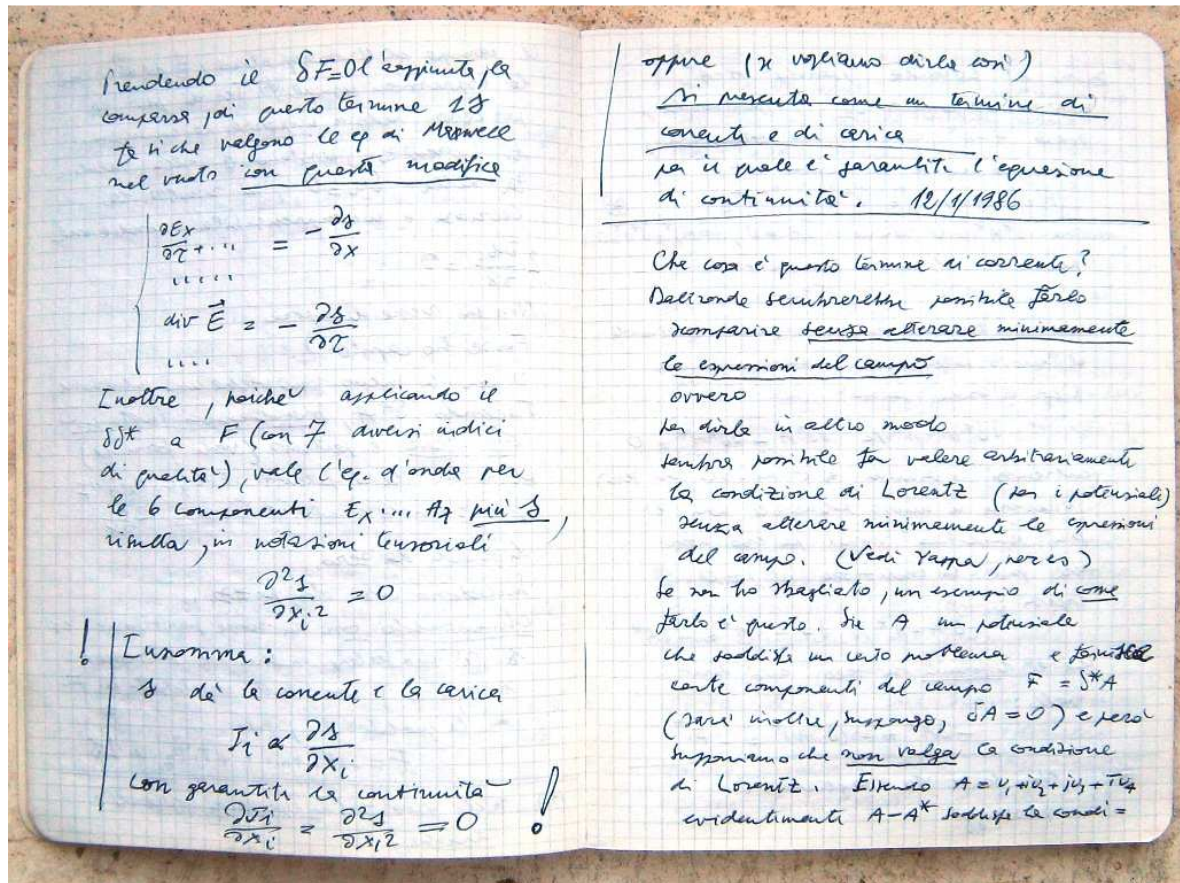 Prendendo il δF=0 l'aggiunta, la
comparsa, di questo termine 1s
fa sì che valgono le eq di Maxwell
nel vuoto con questa modifica
∂Ex/∂τ + ... = - ∂s/∂x
.....
div E⃗ = - ∂s/∂τ
....
Inoltre, poiché applicando il
δδ* a F (con 7 diversi indici
di qualità), vale l'eq. d'onda per
le 6 componenti Ex ... Hz più s,
risulta, in notazioni tensoriali
∂²s/∂xi² = 0
! Insomma:
s dà la corrente e la carica
Ji ∝ ∂s/∂xi
con garantita la continuità
∂Ji/∂xi = ∂²s/∂xi² = 0 !
oppure (se vogliamo dirla così)
si presenta come un termine di
corrente e di carica
per il quale è garantita l'equazione
di continuità. 12/1/1986
Che cosa è questo termine di corrente?
Daltronde sembrerebbe possibile farlo
scomparire senza alterare minimamente
le espressioni del campo
ovvero
per dirla in altro modo
sembra possibile far valere arbitrariamente
la condizione di Lorentz (per i potenziali)
senza alterare minimamente le espressioni
del campo. (Vedi, per es)
Se non ho sbagliato, un esempio di come
farlo è questo. Sia A un potenziale
che soddisfa un certo problema e fornisce
certe componenti del campo F = δ*A
(sarà inoltre, suppongo, δA = 0) e però
supponiamo che non valga la condizione
di Lorentz. Essendo A = v₁+iv₂+jv₃+Tv₄
evidentemente A-A* soddisfa la condi=